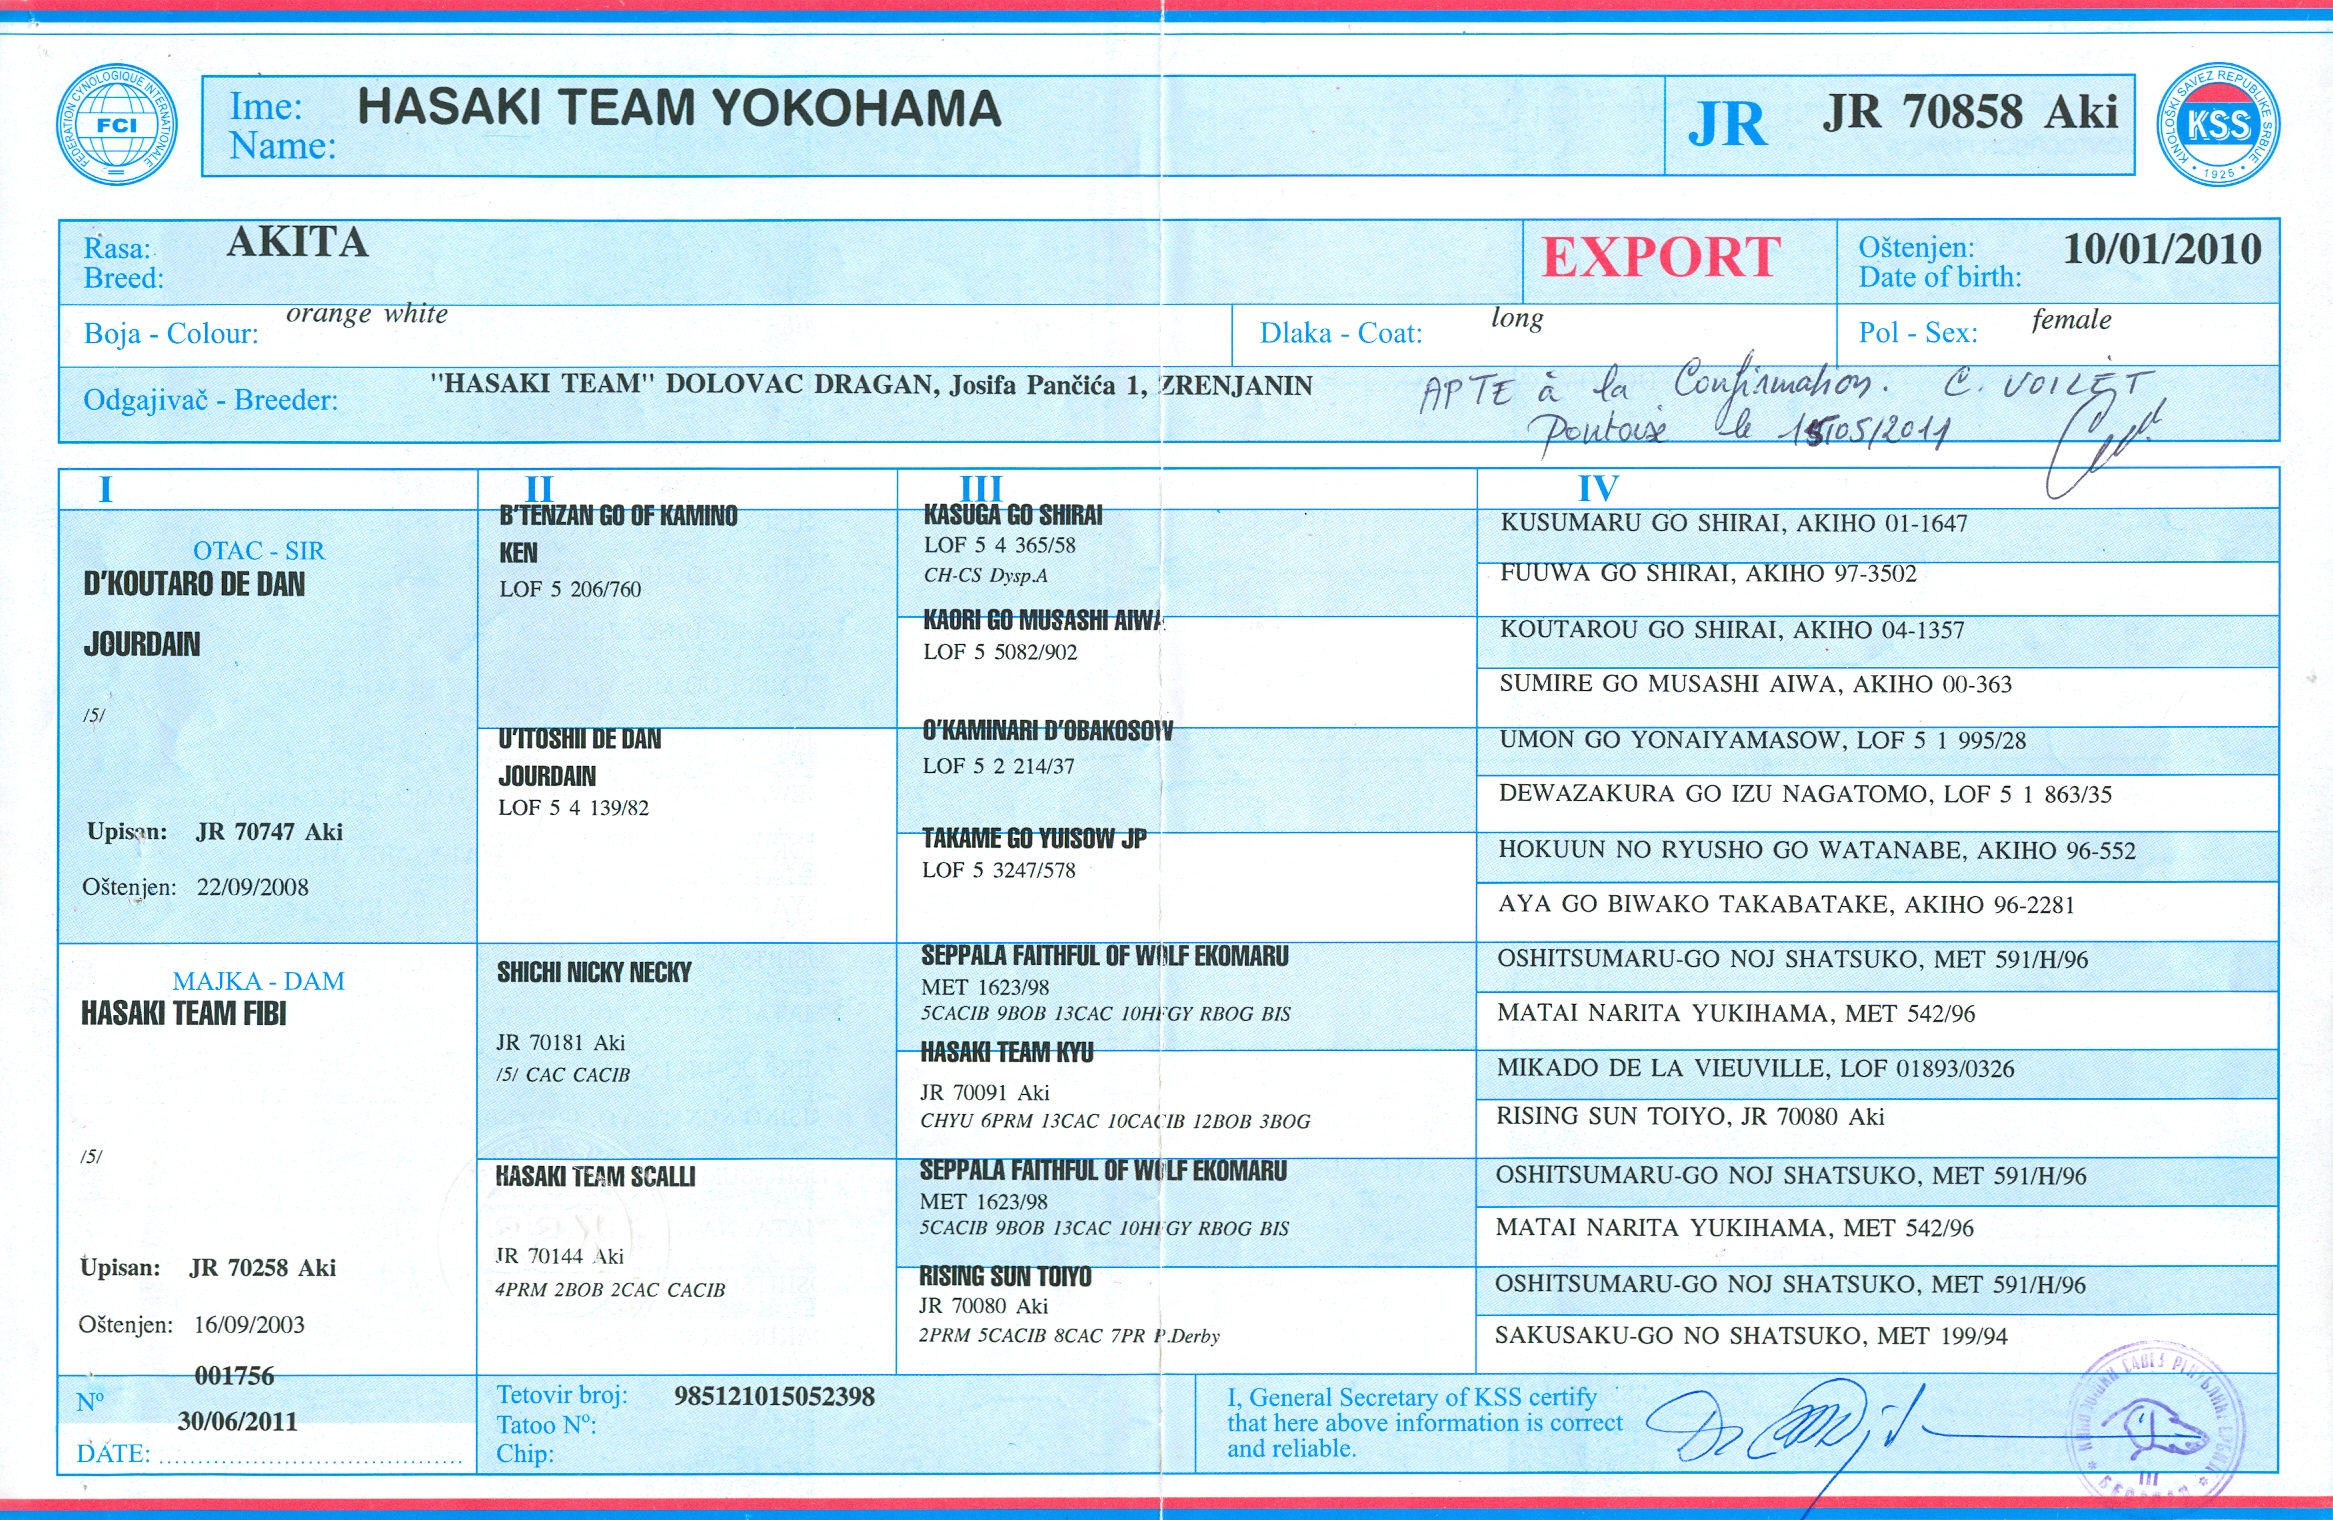 FEDERATION CYNOLOGIQUE INTERNATIONALE
FCI
Ime:
Name:
HASAKI TEAM YOKOHAMA
JR
JR 70858 Aki
KINOLOŠKI SAVEZ REPUBLIKE SRBIJE
KSS
• 1925 •
Rasa:
Breed:
AKITA
EXPORT
Oštenjen:
Date of birth:
10/01/2010
Boja - Colour:
orange white
Dlaka - Coat:
long
Pol - Sex:
female
Odgajivač - Breeder:
"HASAKI TEAM" DOLOVAC DRAGAN, Josifa Pančića 1, ZRENJANIN
APTE à la Confirmation. C. VOILET
Pontoise le 15/05/2011
I
OTAC - SIR
D'KOUTARO DE DAN
JOURDAIN
/5/
Upisan: JR 70747 Aki
Oštenjen: 22/09/2008
MAJKA - DAM
HASAKI TEAM FIBI
/5/
Upisan: JR 70258 Aki
Oštenjen: 16/09/2003
II
B'TENZAN GO OF KAMINO
KEN
LOF 5 206/760
U'ITOSHII DE DAN
JOURDAIN
LOF 5 4 139/82
SHICHI NICKY NECKY
JR 70181 Aki
/5/ CAC CACIB
HASAKI TEAM SCALLI
JR 70144 Aki
4PRM 2BOB 2CAC CACIB
III
KASUGA GO SHIRAI
LOF 5 4 365/58
CH-CS Dysp.A
KAORI GO MUSASHI AIWA
LOF 5 5082/902
O'KAMINARI D'OBAKOSOW
LOF 5 2 214/37
TAKAME GO YUISOW JP
LOF 5 3247/578
SEPPALA FAITHFUL OF WOLF EKOMARU
MET 1623/98
5CACIB 9BOB 13CAC 10HFGY RBOG BIS
HASAKI TEAM KYU
JR 70091 Aki
CHYU 6PRM 13CAC 10CACIB 12BOB 3BOG
SEPPALA FAITHFUL OF WOLF EKOMARU
MET 1623/98
5CACIB 9BOB 13CAC 10HFGY RBOG BIS
RISING SUN TOIYO
JR 70080 Aki
2PRM 5CACIB 8CAC 7PR P.Derby
IV
KUSUMARU GO SHIRAI, AKIHO 01-1647
FUUWA GO SHIRAI, AKIHO 97-3502
KOUTAROU GO SHIRAI, AKIHO 04-1357
SUMIRE GO MUSASHI AIWA, AKIHO 00-363
UMON GO YONAIYAMASOW, LOF 5 1 995/28
DEWAZAKURA GO IZU NAGATOMO, LOF 5 1 863/35
HOKUUN NO RYUSHO GO WATANABE, AKIHO 96-552
AYA GO BIWAKO TAKABATAKE, AKIHO 96-2281
OSHITSUMARU-GO NOJ SHATSUKO, MET 591/H/96
MATAI NARITA YUKIHAMA, MET 542/96
MIKADO DE LA VIEUVILLE, LOF 01893/0326
RISING SUN TOIYO, JR 70080 Aki
OSHITSUMARU-GO NOJ SHATSUKO, MET 591/H/96
MATAI NARITA YUKIHAMA, MET 542/96
OSHITSUMARU-GO NOJ SHATSUKO, MET 591/H/96
SAKUSAKU-GO NO SHATSUKO, MET 199/94
001756
Nº
30/06/2011
DATE:
Tetovir broj: 985121015052398
Tatoo Nº:
Chip:
I, General Secretary of KSS certify
that here above information is correct
and reliable.
III